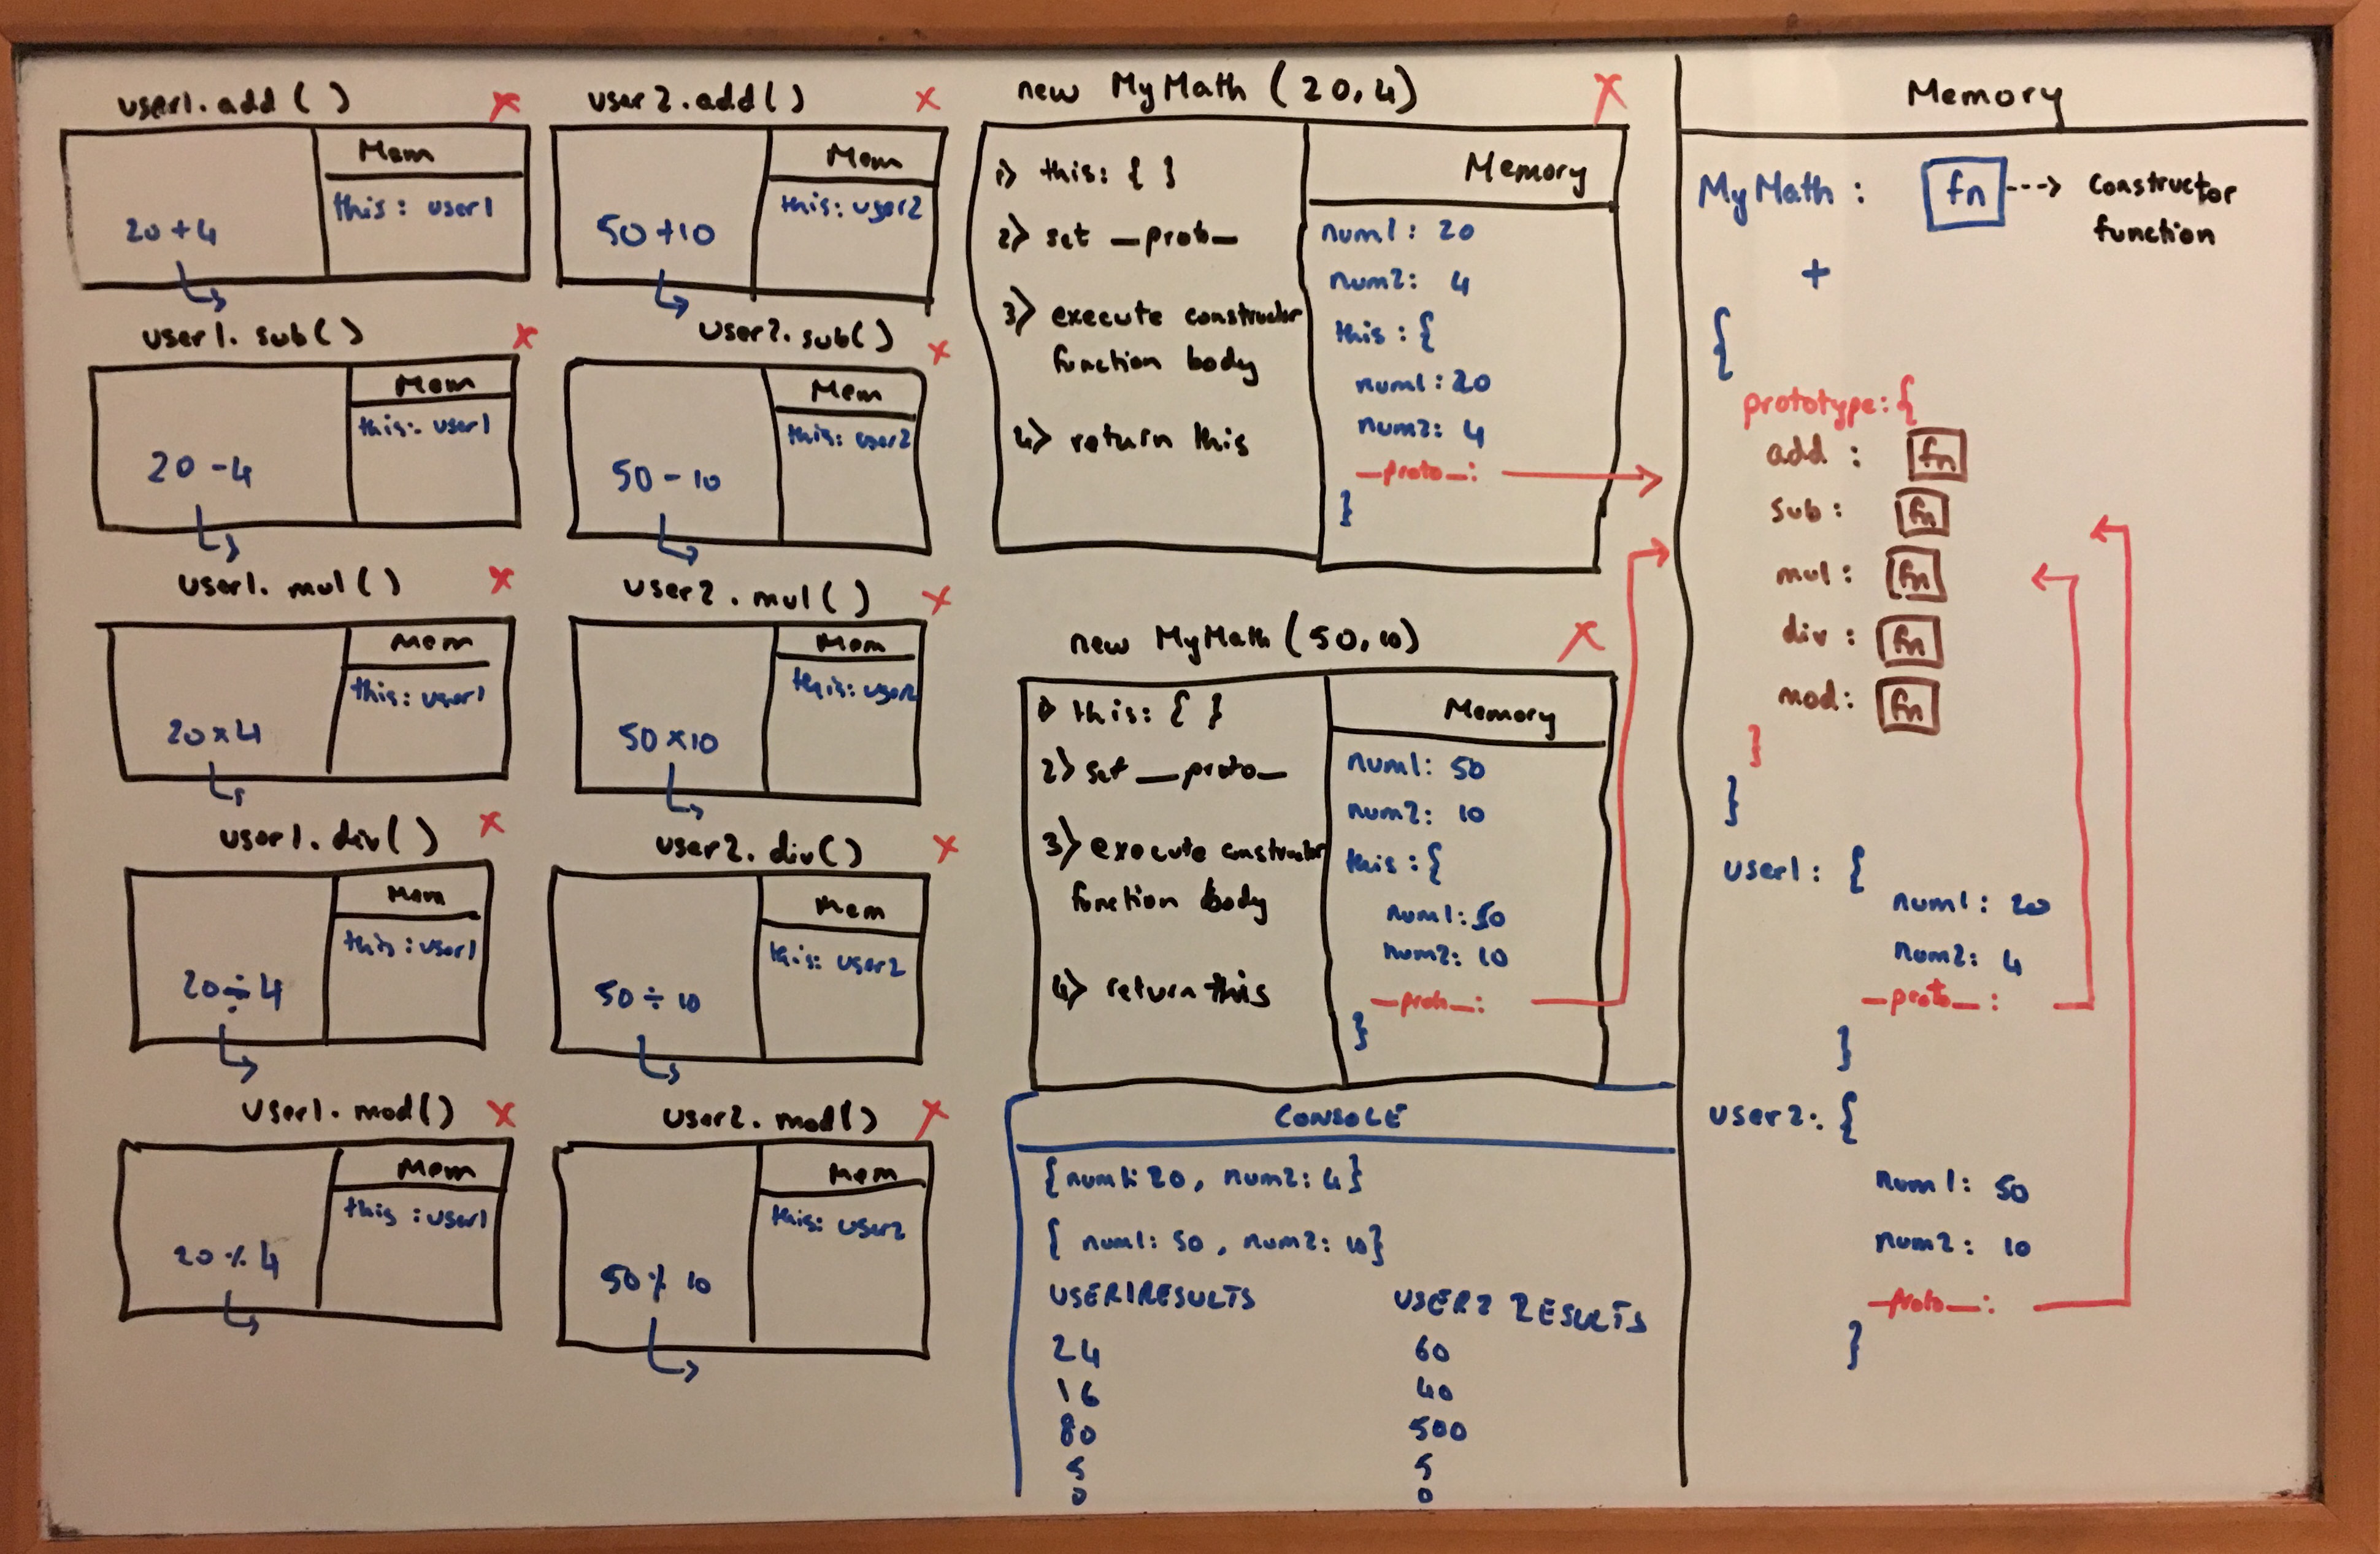 user1.add ( )
Mem
this : user1
20+4
user1. sub( )
Mem
this: user1
20 - 4
user1. mul ( )
Mem
this: user1
20 x 4
user1. div( )
Mem
this : user1
20 ÷ 4
user1. mod( )
Mem
this : user1
20 % 4
user2.add( )
Mem
this: user2
50+10
user2.sub( )
Mem
this: user2
50 - 10
user2 . mul ( )
Mem
this: user2
50 x 10
user2. div( )
Mem
this: user2
50 ÷ 10
user2. mod( )
Mem
this: user2
50 % 10
new MyMath (20,4)
1> this: { }
2> set __proto__
3> execute constructor
function body
4> return this
Memory
num1: 20
num2: 4
this : {
num1: 20
num2: 4
__proto__:
}
new MyMath (50,10)
1> this: { }
2> set __proto__
3> execute constructor
function body
4> return this
Memory
num1: 50
num2: 10
this : {
num1: 50
num2: 10
__proto__:
}
CONSOLE
{num1: 20, num2: 4}
{ num1: 50 , num2: 10}
USER1RESULTS
24
16
80
5
0
USER2 RESULTS
60
40
500
5
0
Memory
MyMath : fn ---> constructor
function
+
{
prototype: {
add : fn
sub : fn
mul : fn
div : fn
mod: fn
}
}
user1: {
num1: 20
num2: 4
__proto__:
}
user2: {
num1: 50
num2: 10
__proto__:
}